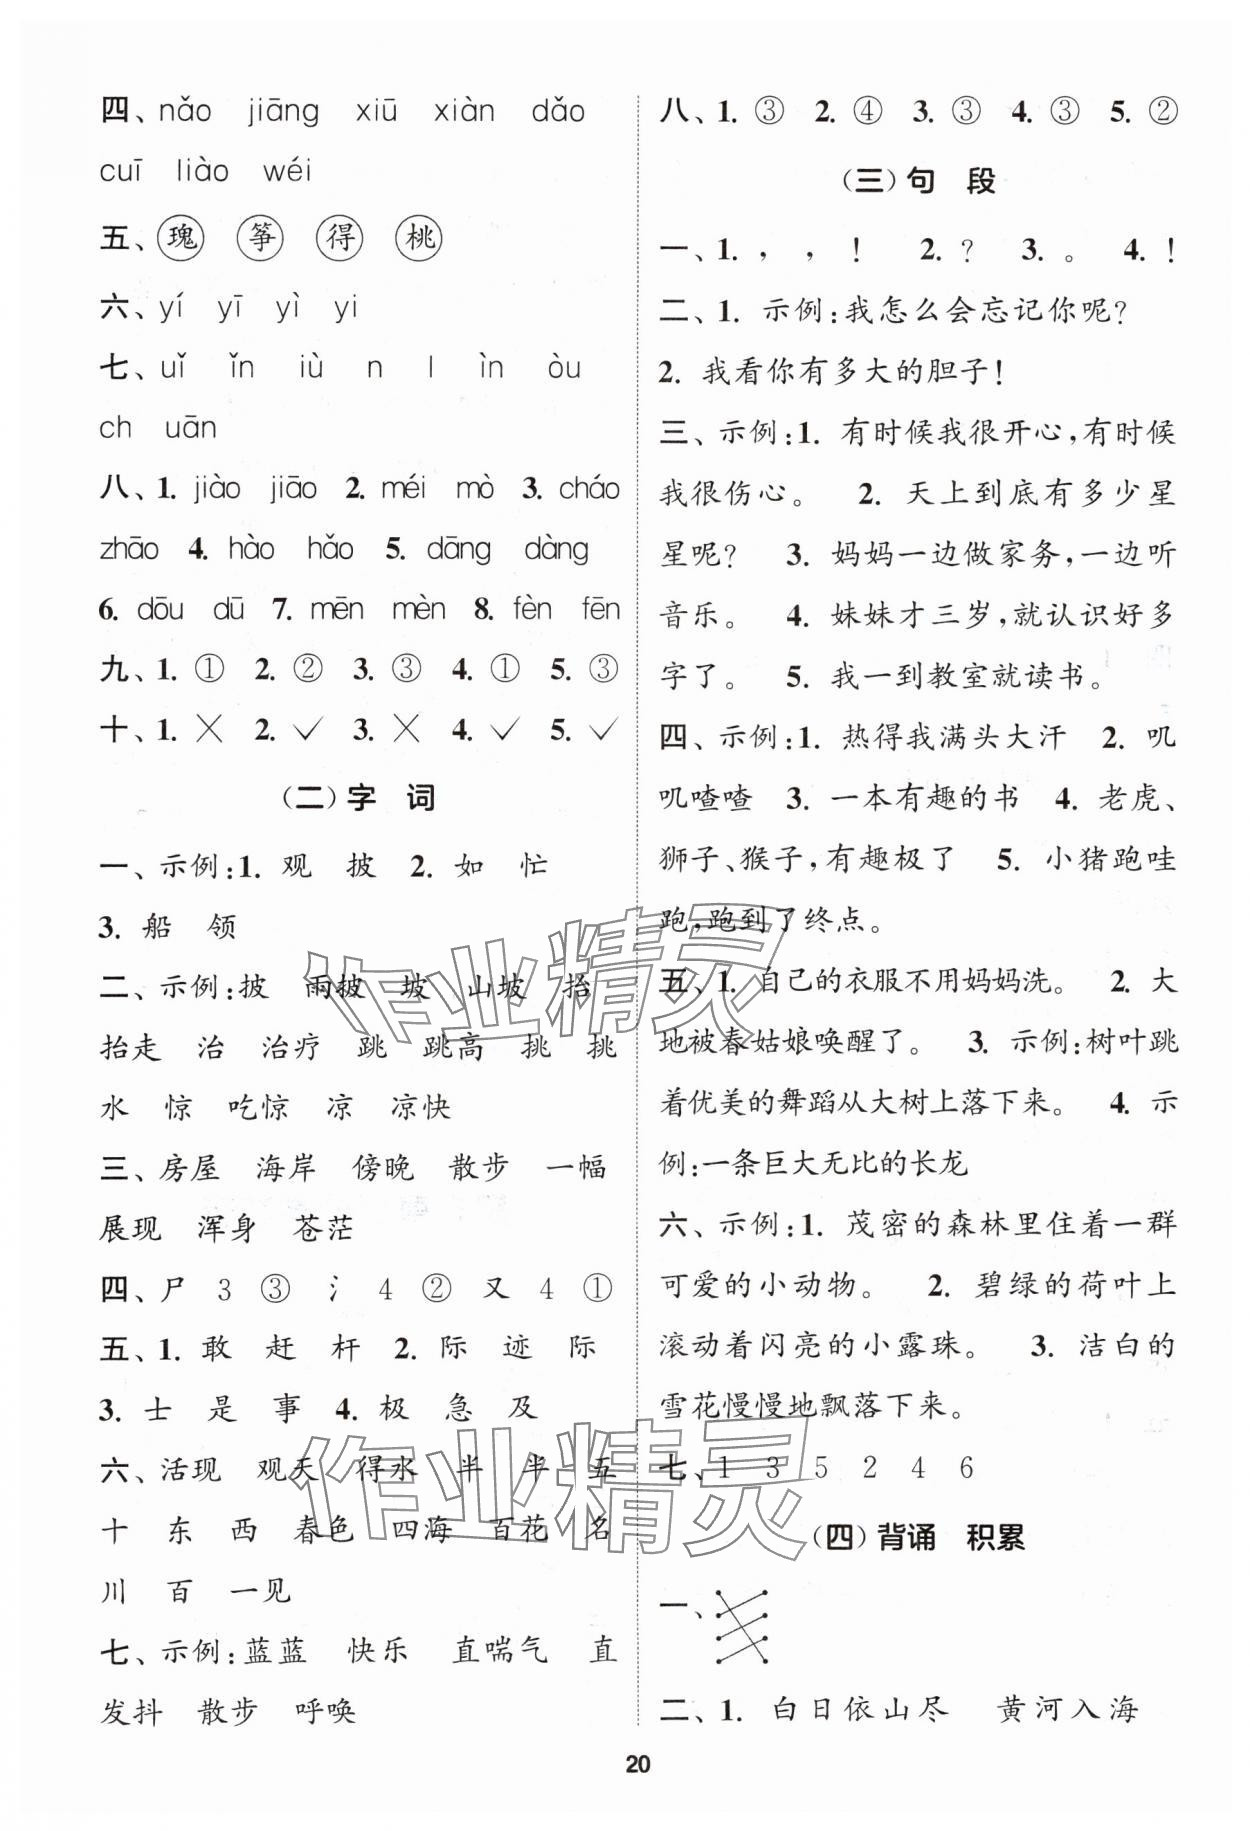 四、nǎo jiāng xiū xiàn dǎo
cuī liào wéi
五、瑰 筝 得 桃
六、yí yī yì yi
七、uǐ ǐn iù n l ìn òu
ch uān
八、1. jiào jiāo 2. méi mò 3. cháo
zhāo 4. hào hǎo 5. dāng dàng
6. dōu dū 7. mēn mèn 8. fèn fēn
九、1. ① 2. ② 3. ③ 4. ① 5. ③
十、1. ╳ 2. ✓ 3. ╳ 4. ✓ 5. ✓
(二)字 词
一、示例:1. 观 披 2. 如 忙
3. 船 领
二、示例:披 雨披 坡 山坡 抬
抬走 治 治疗 跳 跳高 挑 挑
水 惊 吃惊 凉 凉快
三、房屋 海岸 傍晚 散步 一幅
展现 浑身 苍茫
四、尸 3 ③ 氵 4 ② 又 4 ①
五、1. 敢 赶 杆 2. 际 迹 际
3. 士 是 事 4. 极 急 及
六、活现 观天 得水 半 半 五
十 东 西 春色 四海 百花 名
川 百 一见
七、示例:蓝蓝 快乐 直喘气 直
发抖 散步 呼唤
八、1. ③ 2. ④ 3. ③ 4. ③ 5. ②
(三)句 段
一、1. , , ! 2. ? 3. 。 4. !
二、1. 示例:我怎么会忘记你呢?
2. 我看你有多大的胆子!
三、示例:1. 有时候我很开心,有时候
我很伤心。 2. 天上到底有多少星
星呢? 3. 妈妈一边做家务,一边听
音乐。 4. 妹妹才三岁,就认识好多
字了。 5. 我一到教室就读书。
四、示例:1. 热得我满头大汗 2. 叽
叽喳喳 3. 一本有趣的书 4. 老虎、
狮子、猴子,有趣极了 5. 小猪跑哇
跑,跑到了终点。
五、1. 自己的衣服不用妈妈洗。 2. 大
地被春姑娘唤醒了。 3. 示例:树叶跳
着优美的舞蹈从大树上落下来。 4. 示
例:一条巨大无比的长龙
六、示例:1. 茂密的森林里住着一群
可爱的小动物。 2. 碧绿的荷叶上
滚动着闪亮的小露珠。 3. 洁白的
雪花慢慢地飘落下来。
七、1 3 5 2 4 6
(四)背诵 积累
一、
二、1. 白日依山尽 黄河入海
20
作业精灵
作业精灵